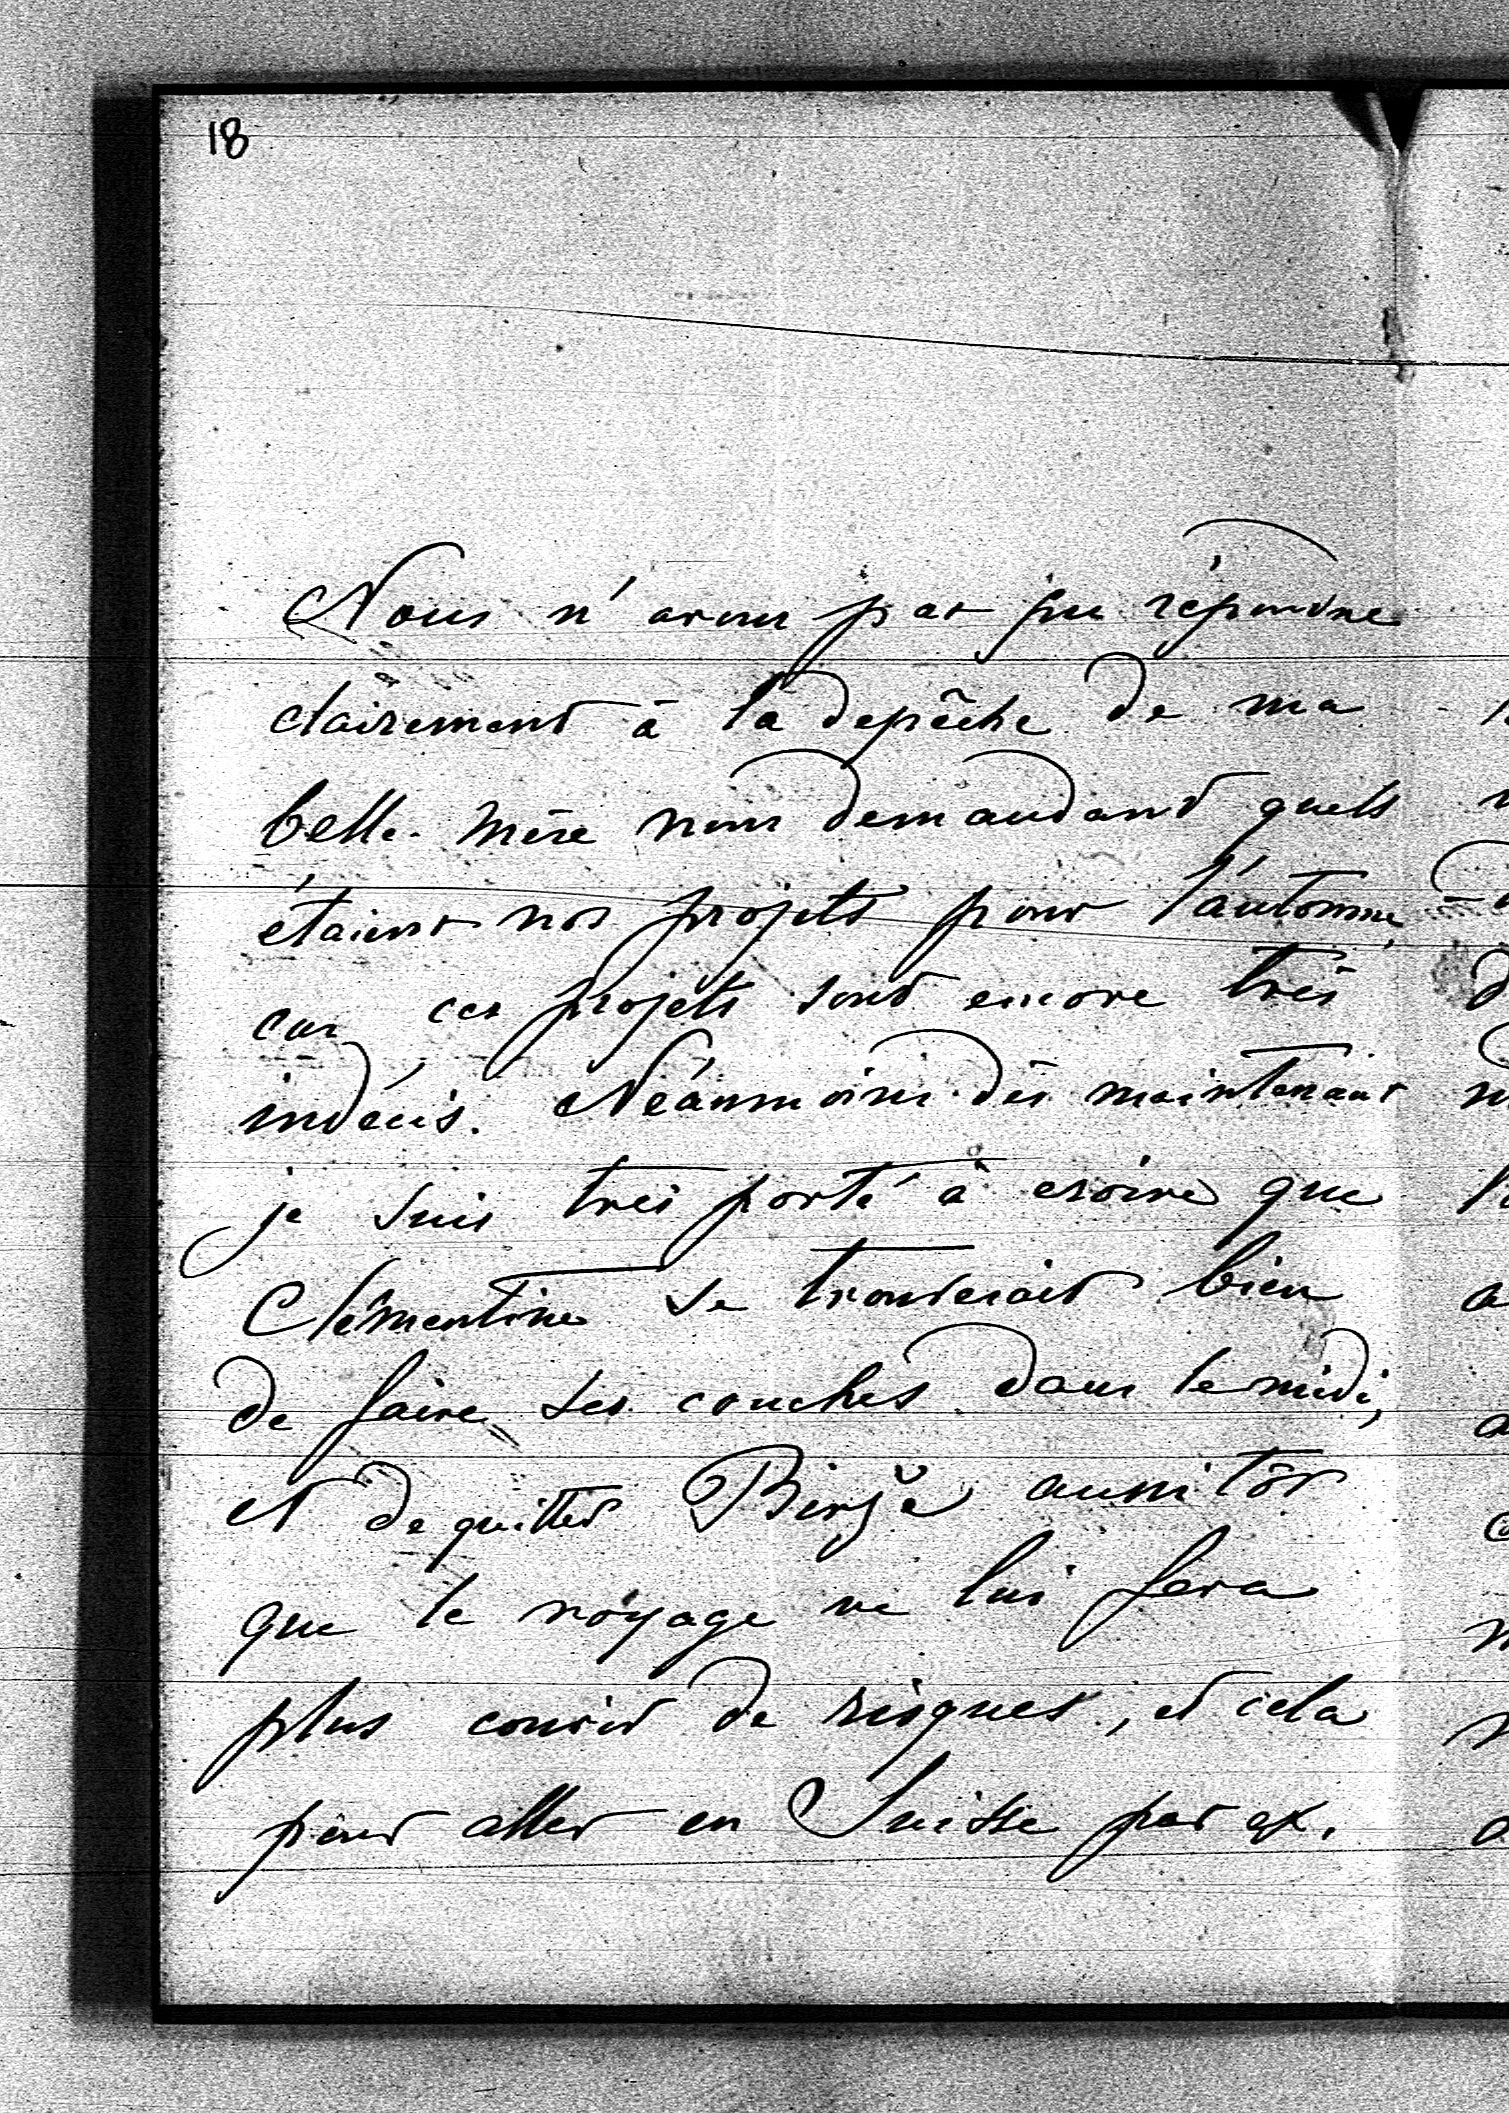 18
Nous n'avons pas pu répondre
clairement à la depêche de ma
belle-mère nous demandant quels
étaient nos projets pour l'automne,
car ces projets sont encore très
indécis. Néanmoins dès maintenant
je suis très porté à croire que
Clémentine se trouverait bien
de faire ses couches dans le midi,
et de quitter Birże aussitôt
que le voyage ne lui fera
plus courir de risques, et cela
pour aller en Suisse par ex.